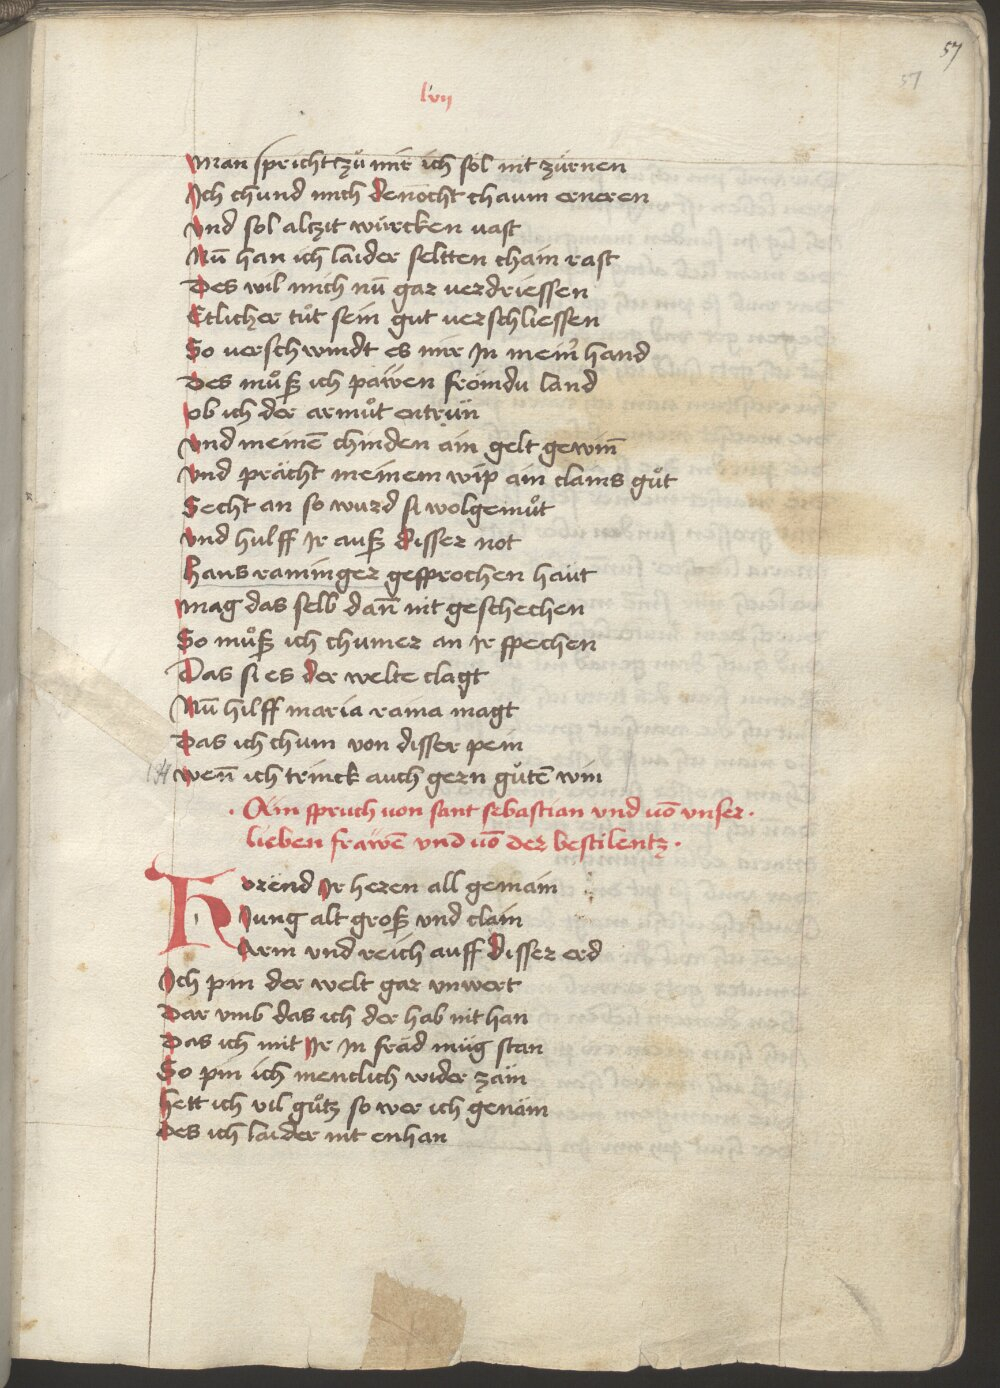 57
57
lvij
Man spricht zů mir ich söl nit zürnen
Ich chund mich denocht chaum erneren
Vnd sol altzit würcken vast
Nū han ich laider seltten chain rast
Des wil mich nū gar verdriessen
Etlicher tůt sein gut verschliessen
So verschwindt es mir In mein̄ hand
Des můß ich päwen frömdu land
Ob ich der armůt entrün
Vnd meinē chinden ain gelt gewin̄
Vnd prächt meinem wip ain clains gůt
Secht an so wurd si wolgemůt
Vnd hulff Ir auß disser not
Hans raminger gesprochen haüt
Mag das selb dan̄ nit geschechen
So můß ich chumer an Ir spechen
Das si es der welte clagt
Nū hilff maria raina magt
Das ich chum von disser pein
Wen̄ ich trinck auch gern gůtē win
· Ain spruch von sant sebastian vnd vō vnser ·
lieben frawē vnd vō der bestilentz ·
Horend Ir heren all gemain
Jung alt groß vnd clain
Arm vnd reich auff disser erd
Ich pin der welt gar vnwert
Dar vmb das ich der hab nit han
Das ich mit Ir In fräd müg stan
So pin ich menclich wider zäm
Hett ich vil gůtz so wer ich genäm
Des ich laider nit enhan